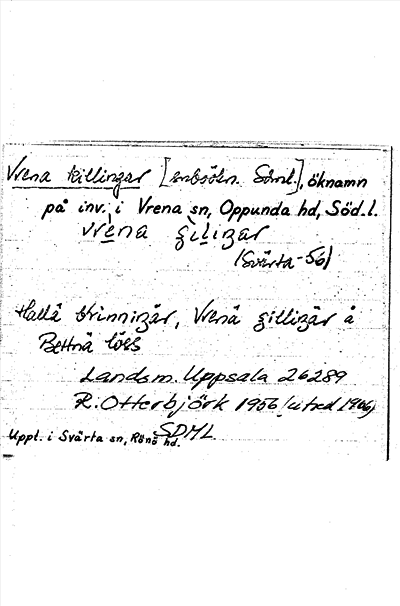 Vrena killingar [sockn. Söml.], öknamn
på inv. i Vrena sn, Oppunda hd, Söd.l.
vrena gilingar
(Svärta -56)
Hallä brinningär, Vrenä gillingär å
Bettnä löss
Landsm. Uppsala 26289
R. Otterbjörk 1956 (utred 1966)
SDML
Uppt. i Svärta sn, Rönö hd.